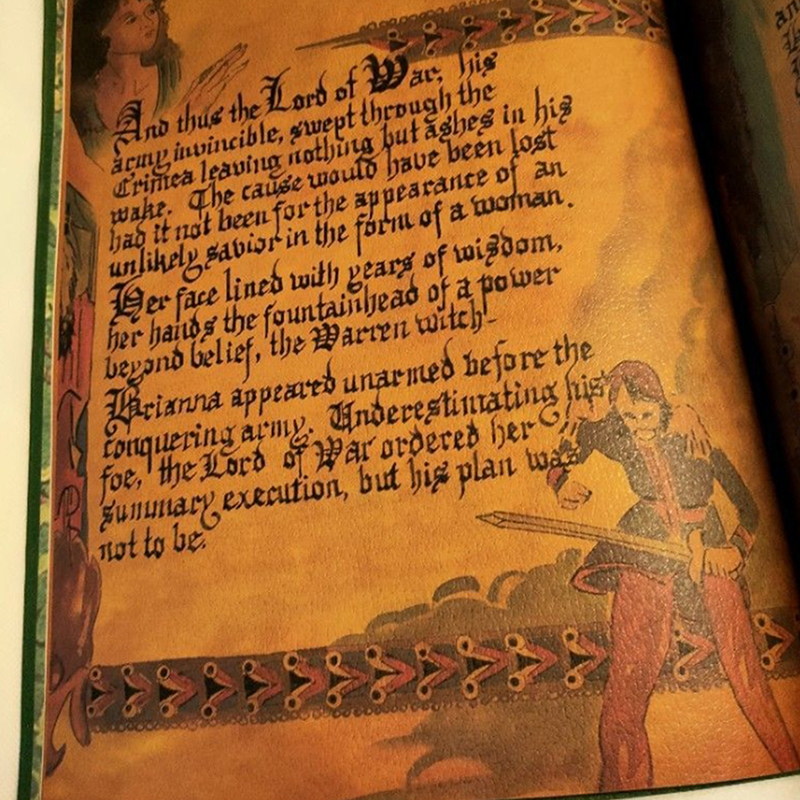 And thus the Lord of War, his
army invincible, swept through the
Crimea leaving nothing but ashes in his
wake. The cause would have been lost
had it not been for the appearance of an
unlikely savior in the form of a woman.
Her face lined with years of wisdom,
her hands the fountainhead of a power
beyond belief, the Warren witch-
Brianna appeared unarmed before the
conquering army. Underestimating his
foe, the Lord of War ordered her
summary execution, but his plan was
not to be.